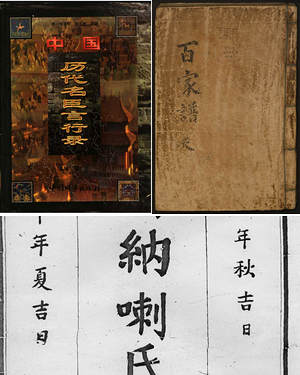 中国
历代名臣言行录
百家譜
年秋吉日
納喇氏
年夏吉日